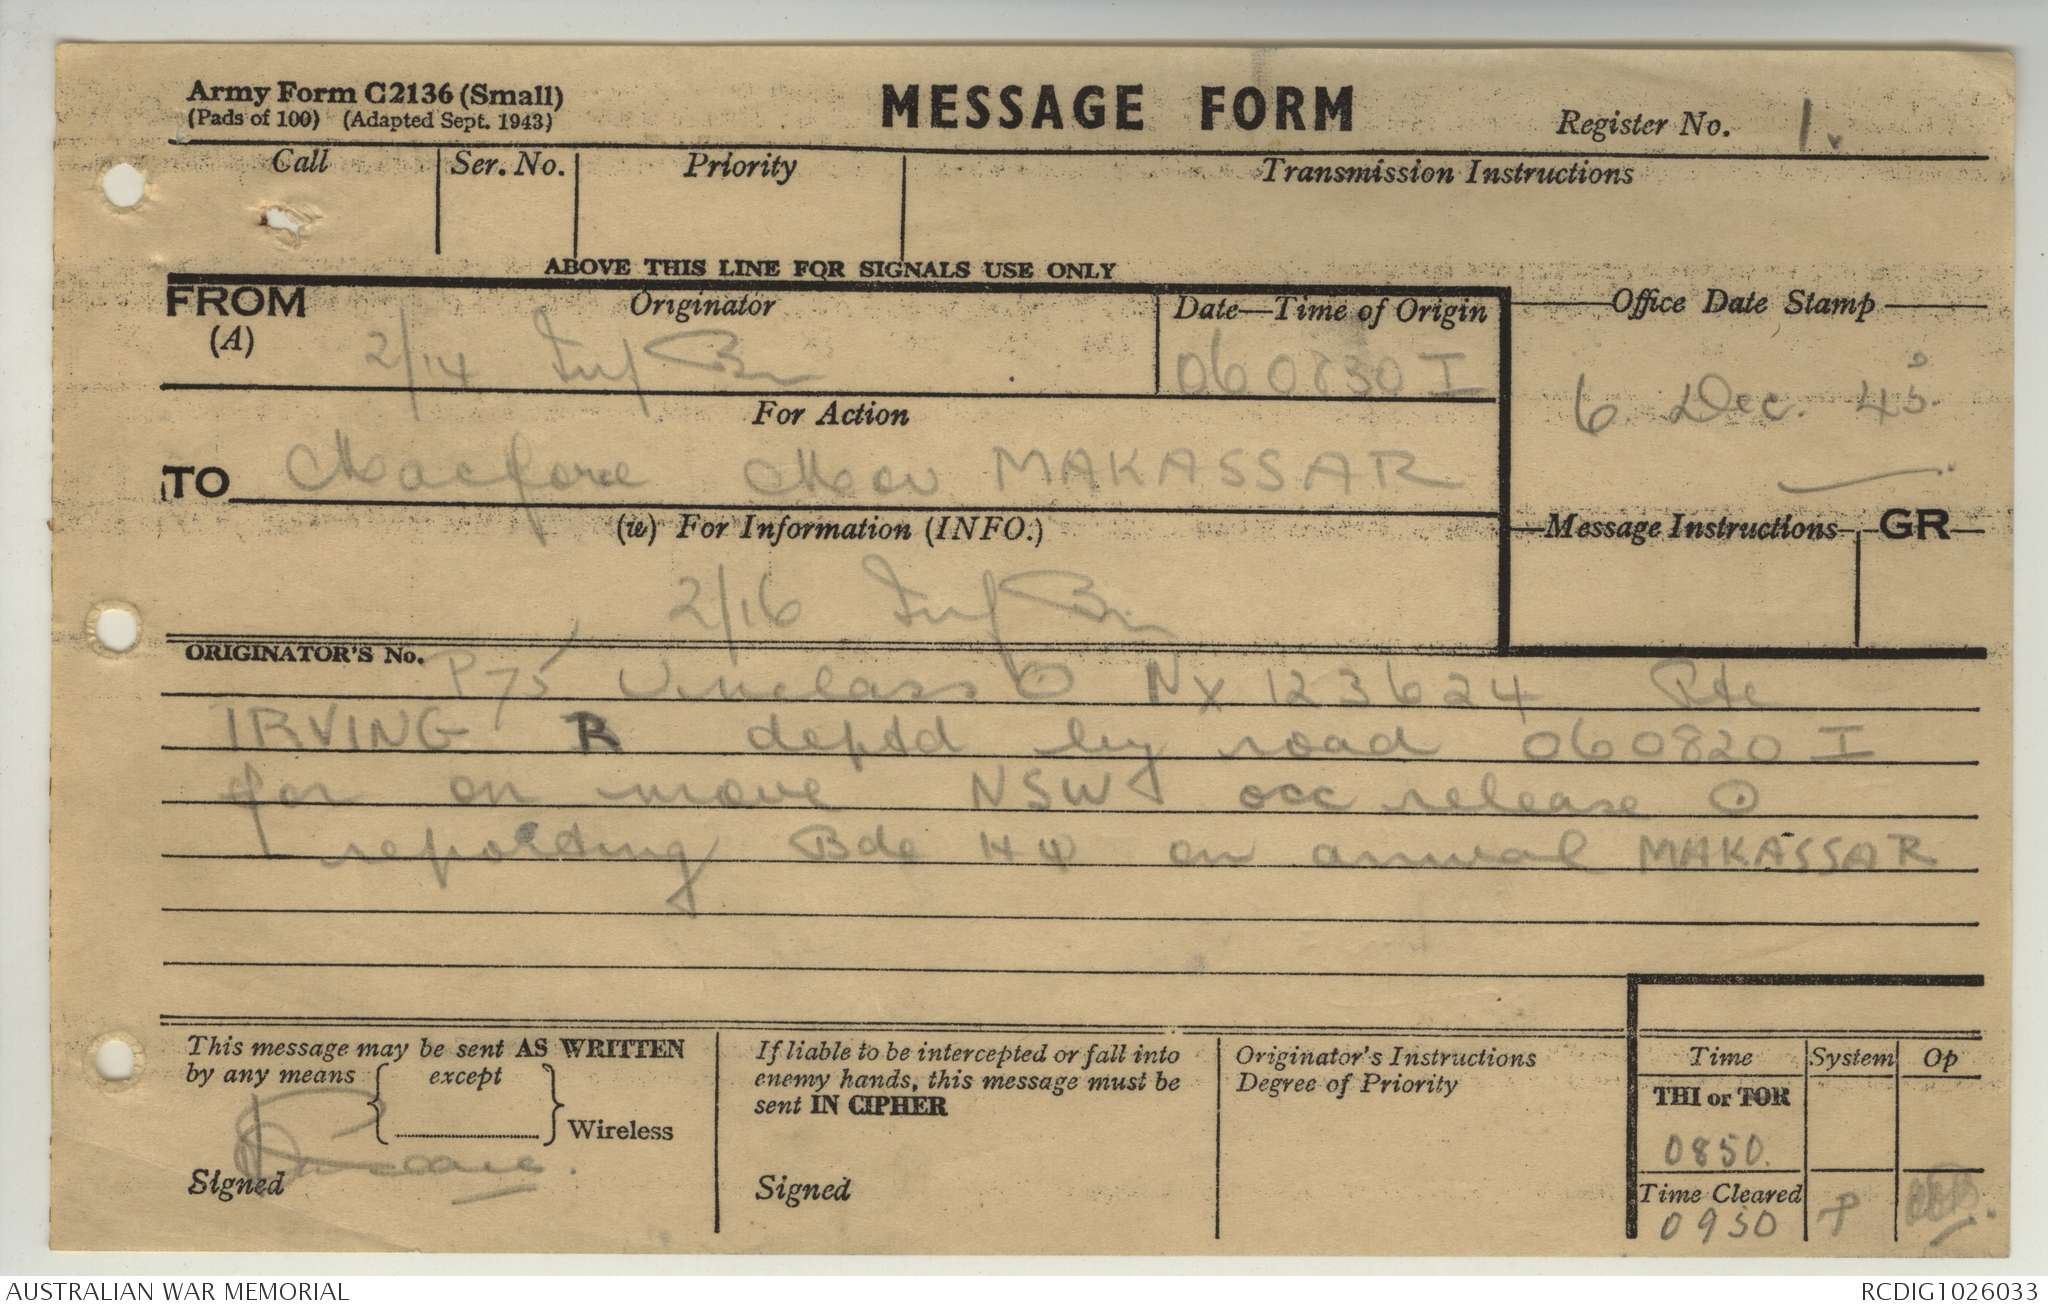 Army Form C2136 (Small)
(Pads of 100) (Adapted Sept. 1943)
MESSAGE FORM
Register No. 1.
Call Ser. No. Priority Transmission Instructions
ABOVE THIS LINE FOR SIGNALS USE ONLY
FROM Originator Date—Time of Origin Office Date Stamp
(A) 2/14 Inf Bn 060830 I
6 Dec. 45.
For Action
TO Macforce MAKASSAR
(w) For Information (INFO.) Message Instructions GR
2/16 Inf Bn
ORIGINATOR'S No.
P75 Unclass O NX 123624 Pte
IRVING R deptd by road 060820 I
for on move NSW occ release O
reporting Bde HQ on arrival MAKASSAR
This message may be sent AS WRITTEN
by any means except
Wireless
Signed
If liable to be intercepted or fall into
enemy hands, this message must be
sent IN CIPHER
Signed
Originator's Instructions
Degree of Priority
Time System Op
THI or TOR
0850.
Time Cleared
0950 P
AUSTRALIAN WAR MEMORIAL RCDIG1026033